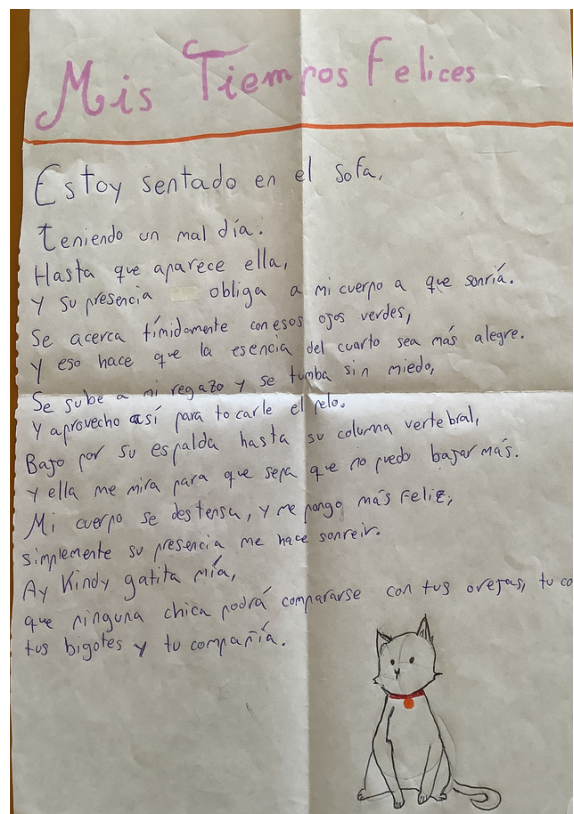 Mis Tiempos Felices
Estoy sentado en el sofa,
teniendo un mal día:
Hasta que aparece ella,
y su presencia obliga a mi cuerpo a que sonría.
Se acerca tímidamente con esos ojos verdes,
Y eso hace que la esencia del cuarto sea más alegre.
Se sube a mi regazo y se tumba sin miedo,
Y aprovecho así para tocarle el pelo.
Bajo por su espalda hasta su columna vertebral,
y ella me mira para que sepa que no puedo bajar más.
Mi cuerpo se destensa, y me pongo más Feliz,
simplemente su presencia me hace sonreir.
Ay Kindy gatita mía,
que ninguna chica podrá compararse con tus orejas, tu co
tus bigotes y tu compañía.